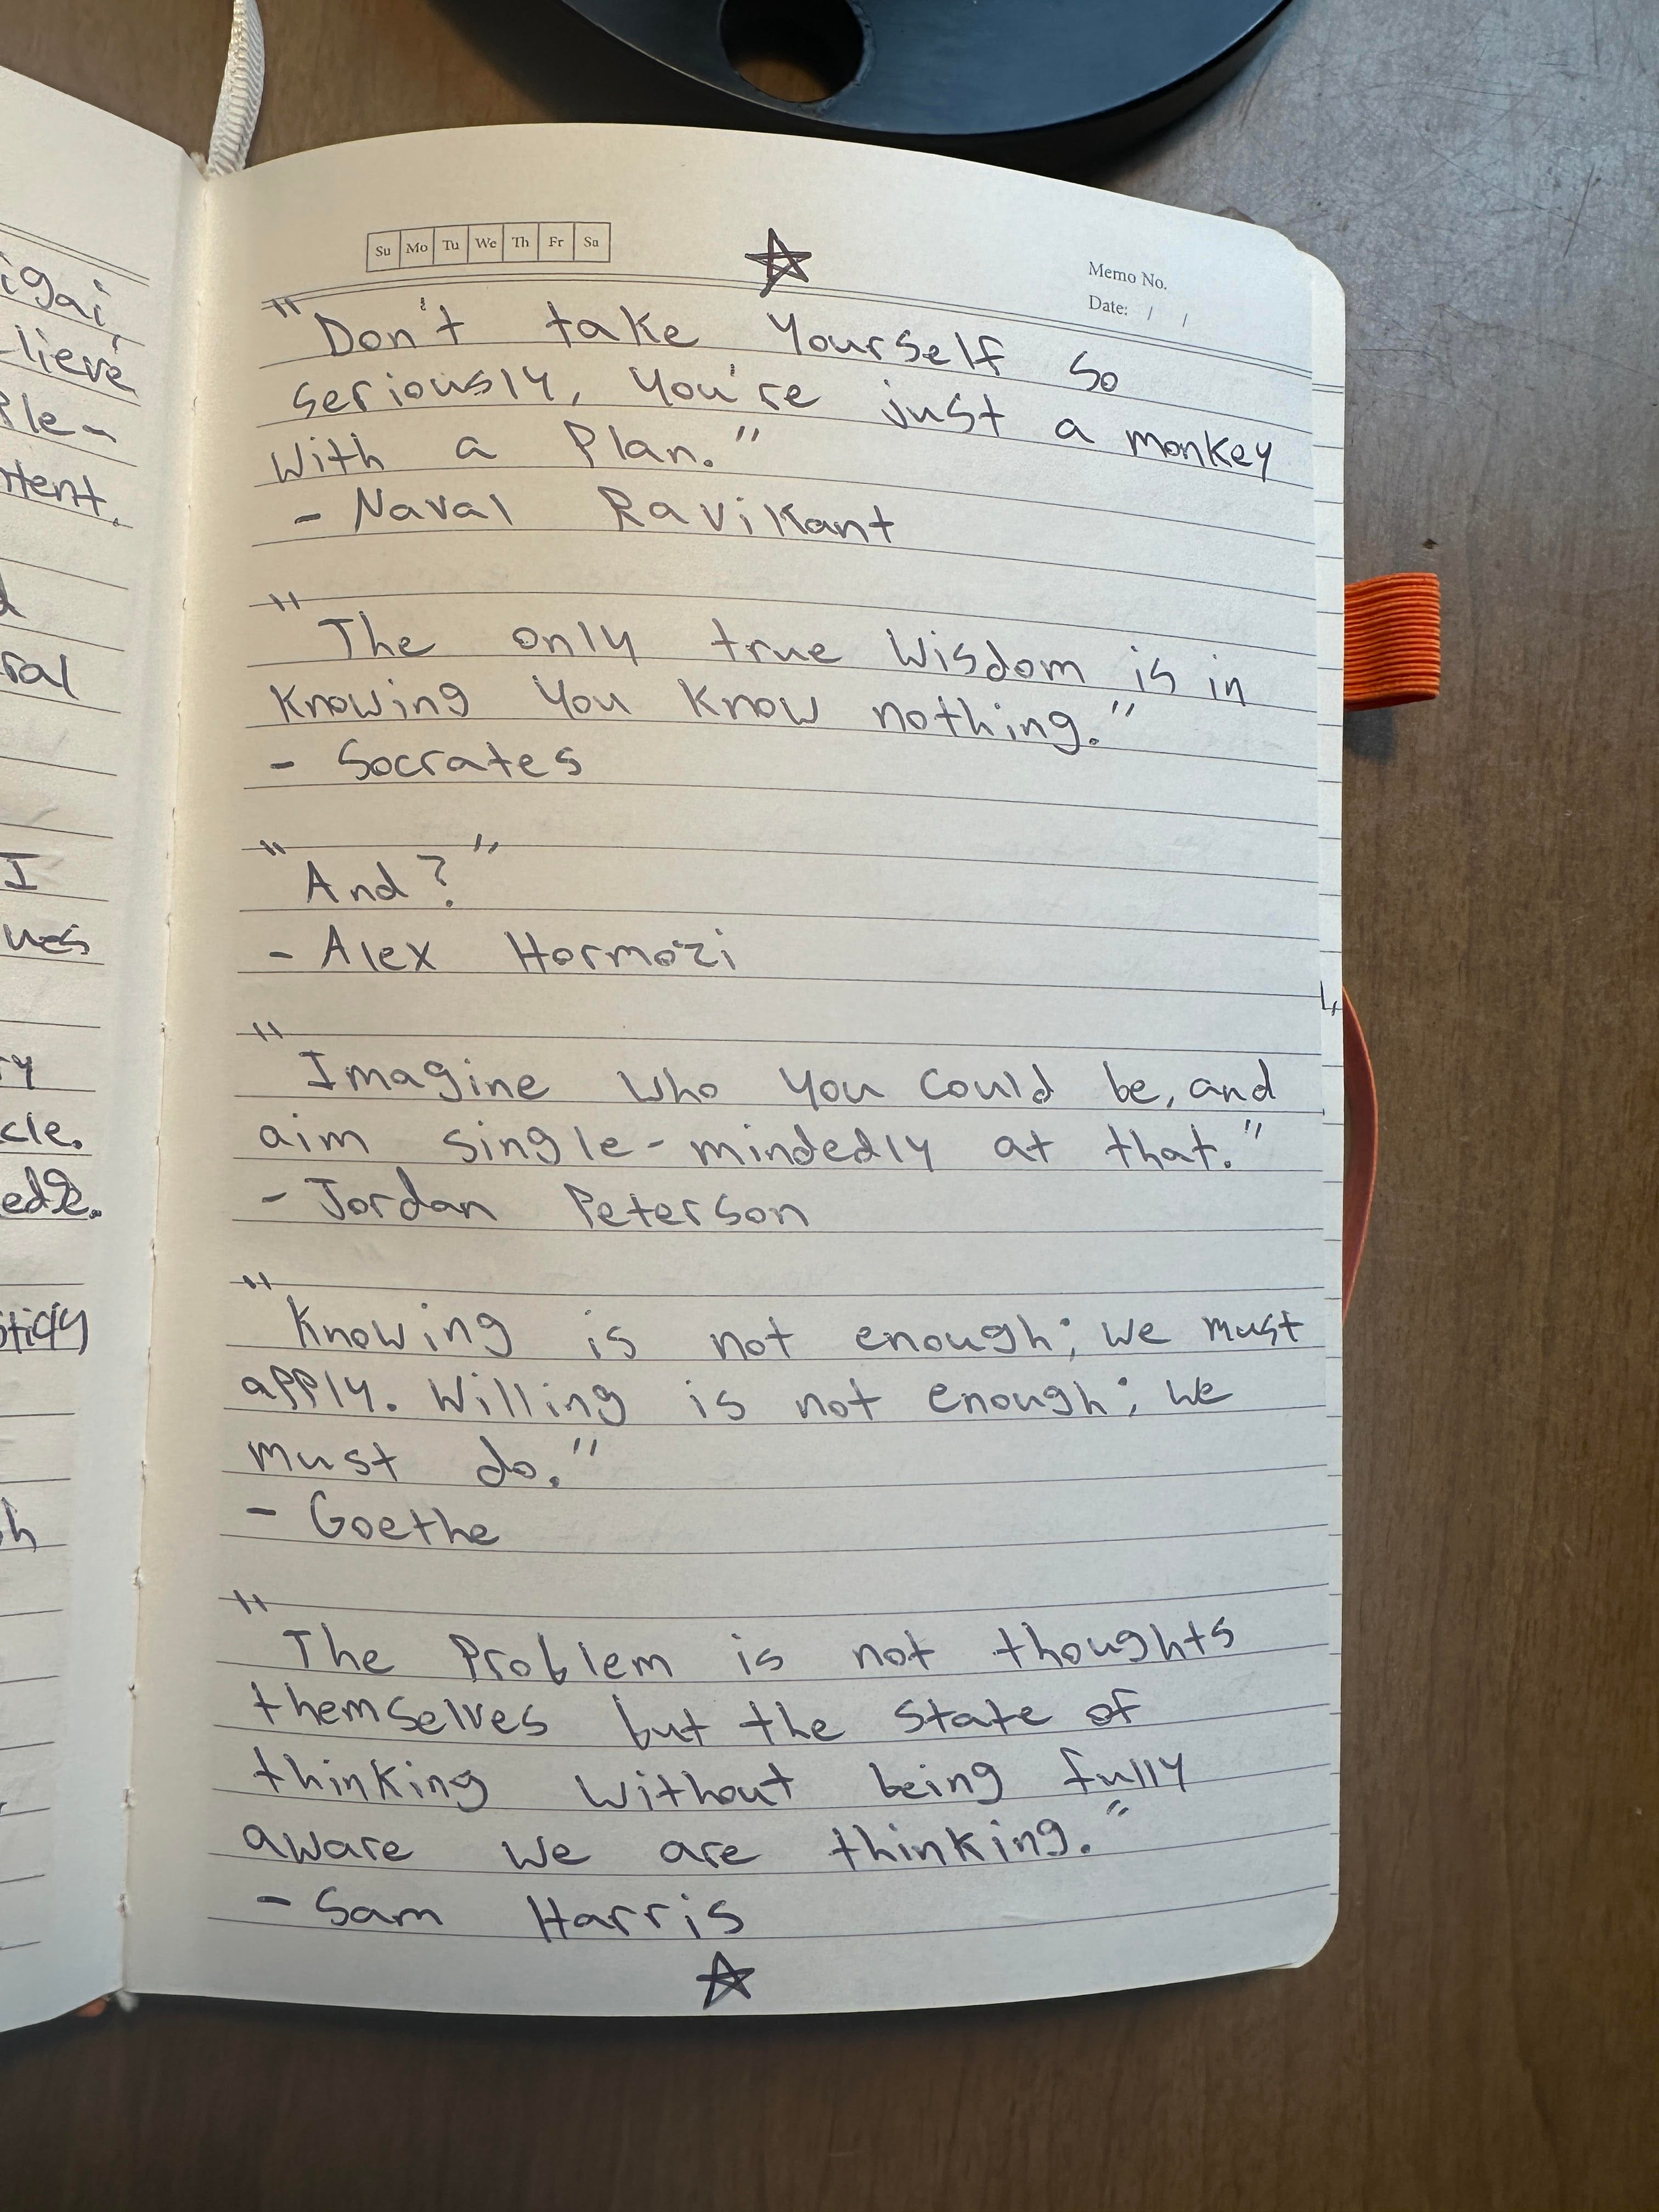 igai,
lieve
ple-
tent.
ral
I
ves
ry
cle.
h
Su Mo Tu We Th Fr Sa
Memo No.
Date: / /
"Don't take Yourself so
seriously, you're just a monkey
with a Plan."
- Naval Ravikant
"The only true Wisdom is in
Knowing You Know nothing."
- Socrates
"And?"
- Alex Hormozi
"Imagine who you could be, and
aim single-mindedly at that."
- Jordan Peterson
"Knowing is not enough; we must
apply. Willing is not enough; we
must do."
- Goethe
"The Problem is not thoughts
themselves but the state of
thinking without being fully
aware we are thinking."
- Sam Harris